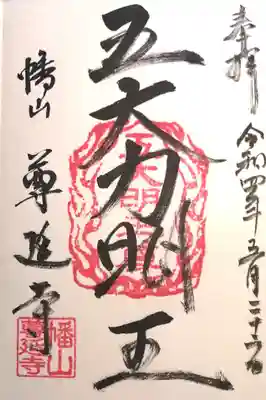 奉拝 令和四年五月二十
五大力明王
幡山 尊延寺
幡山
尊延寺